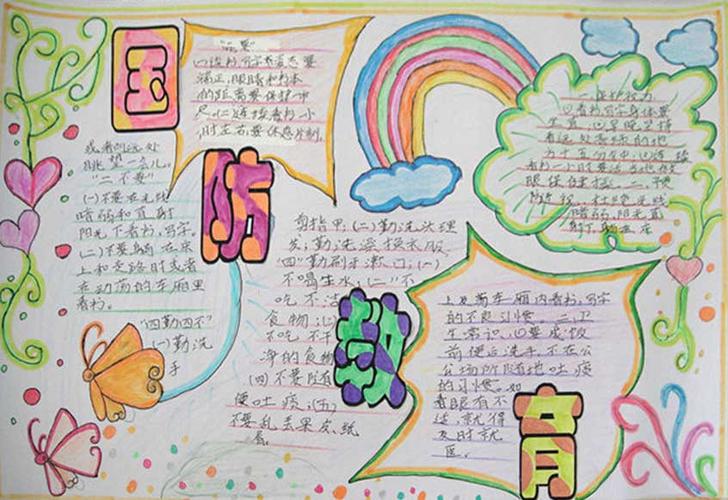 国
防
教
育
"二要"
(一)读书写字姿势要
端正,眼睛和书本
的距离要保护一市
尺。(二)连接看书一小
时左右要休息片刻,
或者向远处
眺望一会儿。
"二不要"
(一)不要在光线
暗弱和直射
阳光下看书,写字。
(二)不要躺在床
上和走路时或者
在动荡的车厢里
看书。
"四勤四不"
(一)勤洗
手
剪指甲;(二)勤洗头理
发;勤洗澡换衣服,
四"勤刷牙漱口;(一)
不喝生水,(二)"不
吃不洁
食物;(三)
不吃不干
净的食物
(四)不要随
便吐痰,(五)
不要乱丢果皮、纸
屑。
一.保护视力
(一)看书写字身体要
看书一小时要
眼保健操。二.不要
暗弱,阳光直
射下,躺在床
上及动车厢内看书,写字
的不良习惯。二、卫
生常识.(一)要成饭
前便后洗手,不在公
公场所随地吐痰
的习惯。如
看眼有不
适,就得
及时就
医。